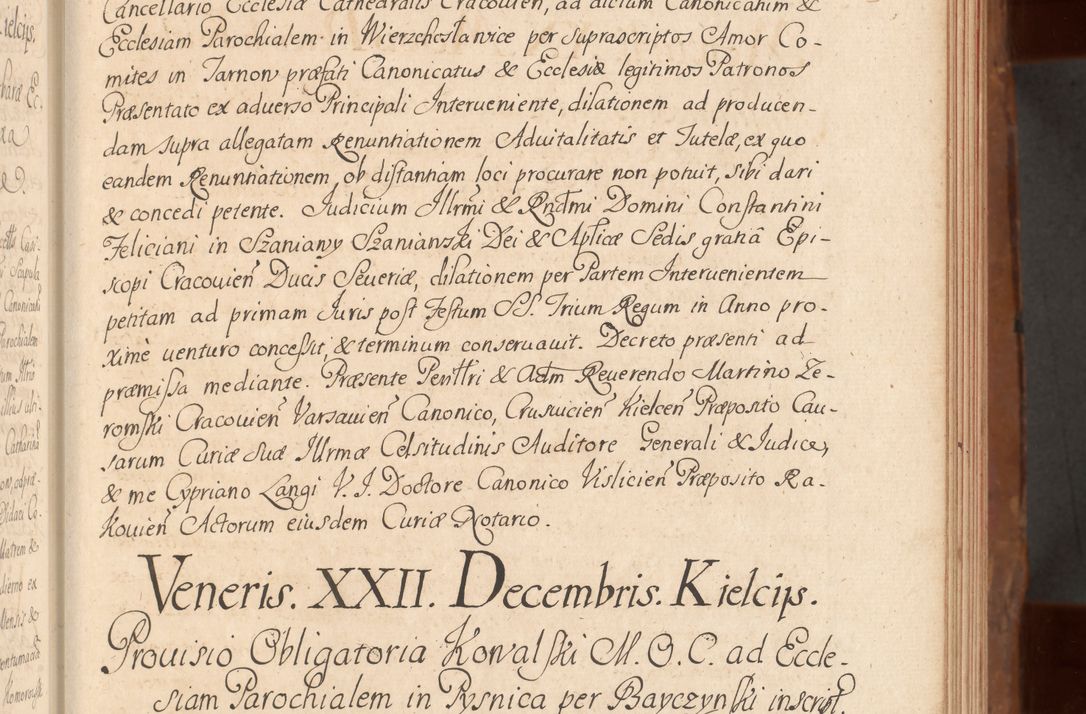 Cancellario Ecclesiæ Cathedralis Cracouien, ad dictum Canonicatum &
Ecclesiam Parochialem in Wierzchosławice per suprascriptos Amor Co-
mites in Tarnow præfati Canonicatus & Ecclesiæ legitimos Patronos
Præsentato ex aduerso Principali Interueniente, dilationem ad producen-
dam supra allegatam Renuntiationem Aduitalitatis et Tutelæ, ex quo
eandem Renuntiationem, ob distantiam loci procurare non potuit, sibi dari
& concedi petente. Judicium Illrmi & Rndmi Domini Constantini
Feliciani in Szaniawy Szaniawski Dei & Aplicæ Sedis gratiâ Epi-
scopi Cracouien Ducis Seueriæ, dilationem per Partem Interuenientem
petitam ad primam Juris post Festum SS. Trium Regum in Anno pro-
ximè uenturo concessit, & terminum conseruauit. Decreto præsenti ad
præmissa mediante. Præsente Perlltri & Adm Reuerendo Martino Ze-
romski Cracouien Varsauien Canonico, Crusuicien Kielcen Præposito Cau-
sarum Curiæ suæ Illrmæ Celsitudinis Auditore Generali & Judice,
& me Cypriano Langi V. J. Doctore Canonico Vislicien Præposito Ra-
kouien Actorum eiusdem Curiæ Notario.
Veneris. XXII. Decembris. Kielcijs.
Prouisio Obligatoria Kowalski M. O. C. ad Eccle-
siam Parochialem in Pysnica per Bayczynski inscript.